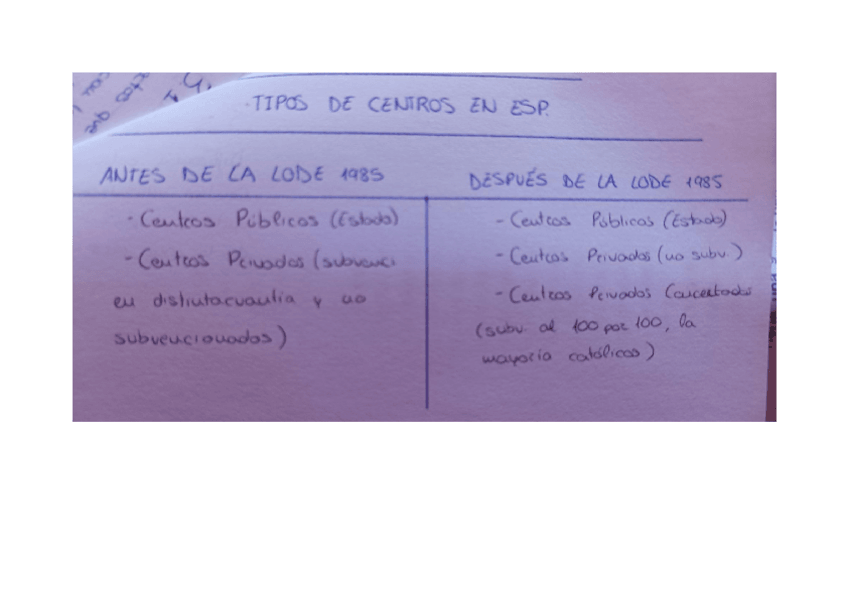 TIPOS DE CENTROS EN ESP.
ANTES DE LA LODE 1985
- Centros Públicos (Estado)
- Centros Privados (subvenci
en distinta cuantía y no
subvencionados)
DESPUÉS DE LA LODE 1985
- Centros Públicos (Estado)
- Centros Privados (no subv.)
- Centros Privados Concertados
(subv. al 100 por 100, la
mayoría católicos)